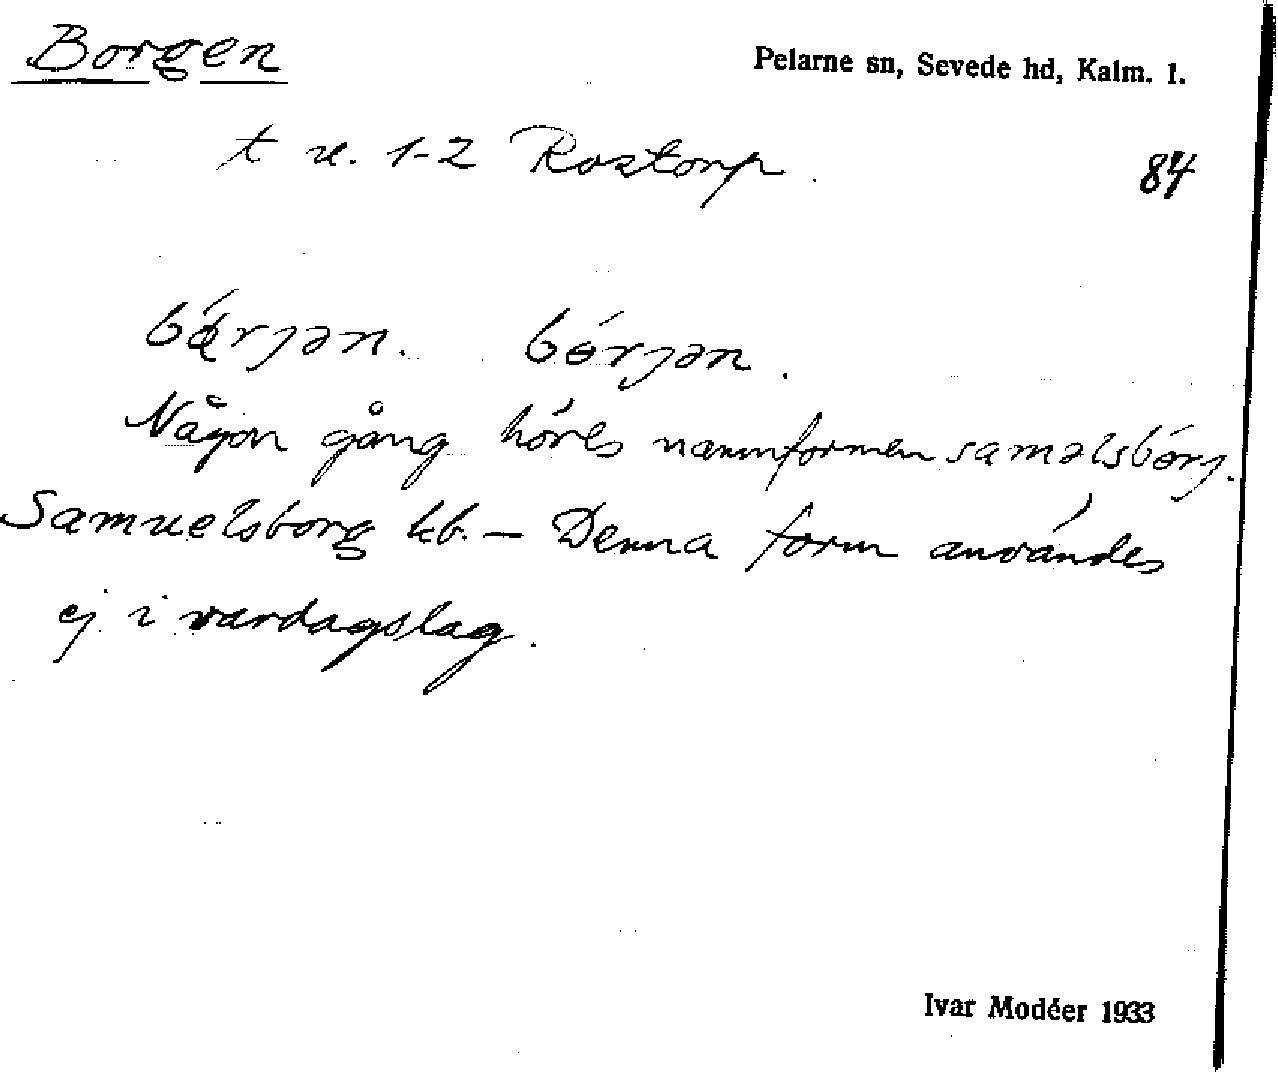 Borgen
Pelarne sn, Sevede hd, Kalm. l.
t u. 1-2 Rostorp
84
bɵ́rjən. bɵ́rjən.
Någon gång höres namnformen saməlsbɵrj.
Samuelsborg kb. – Denna form användes
ej i vardagslag.
Ivar Modéer 1933